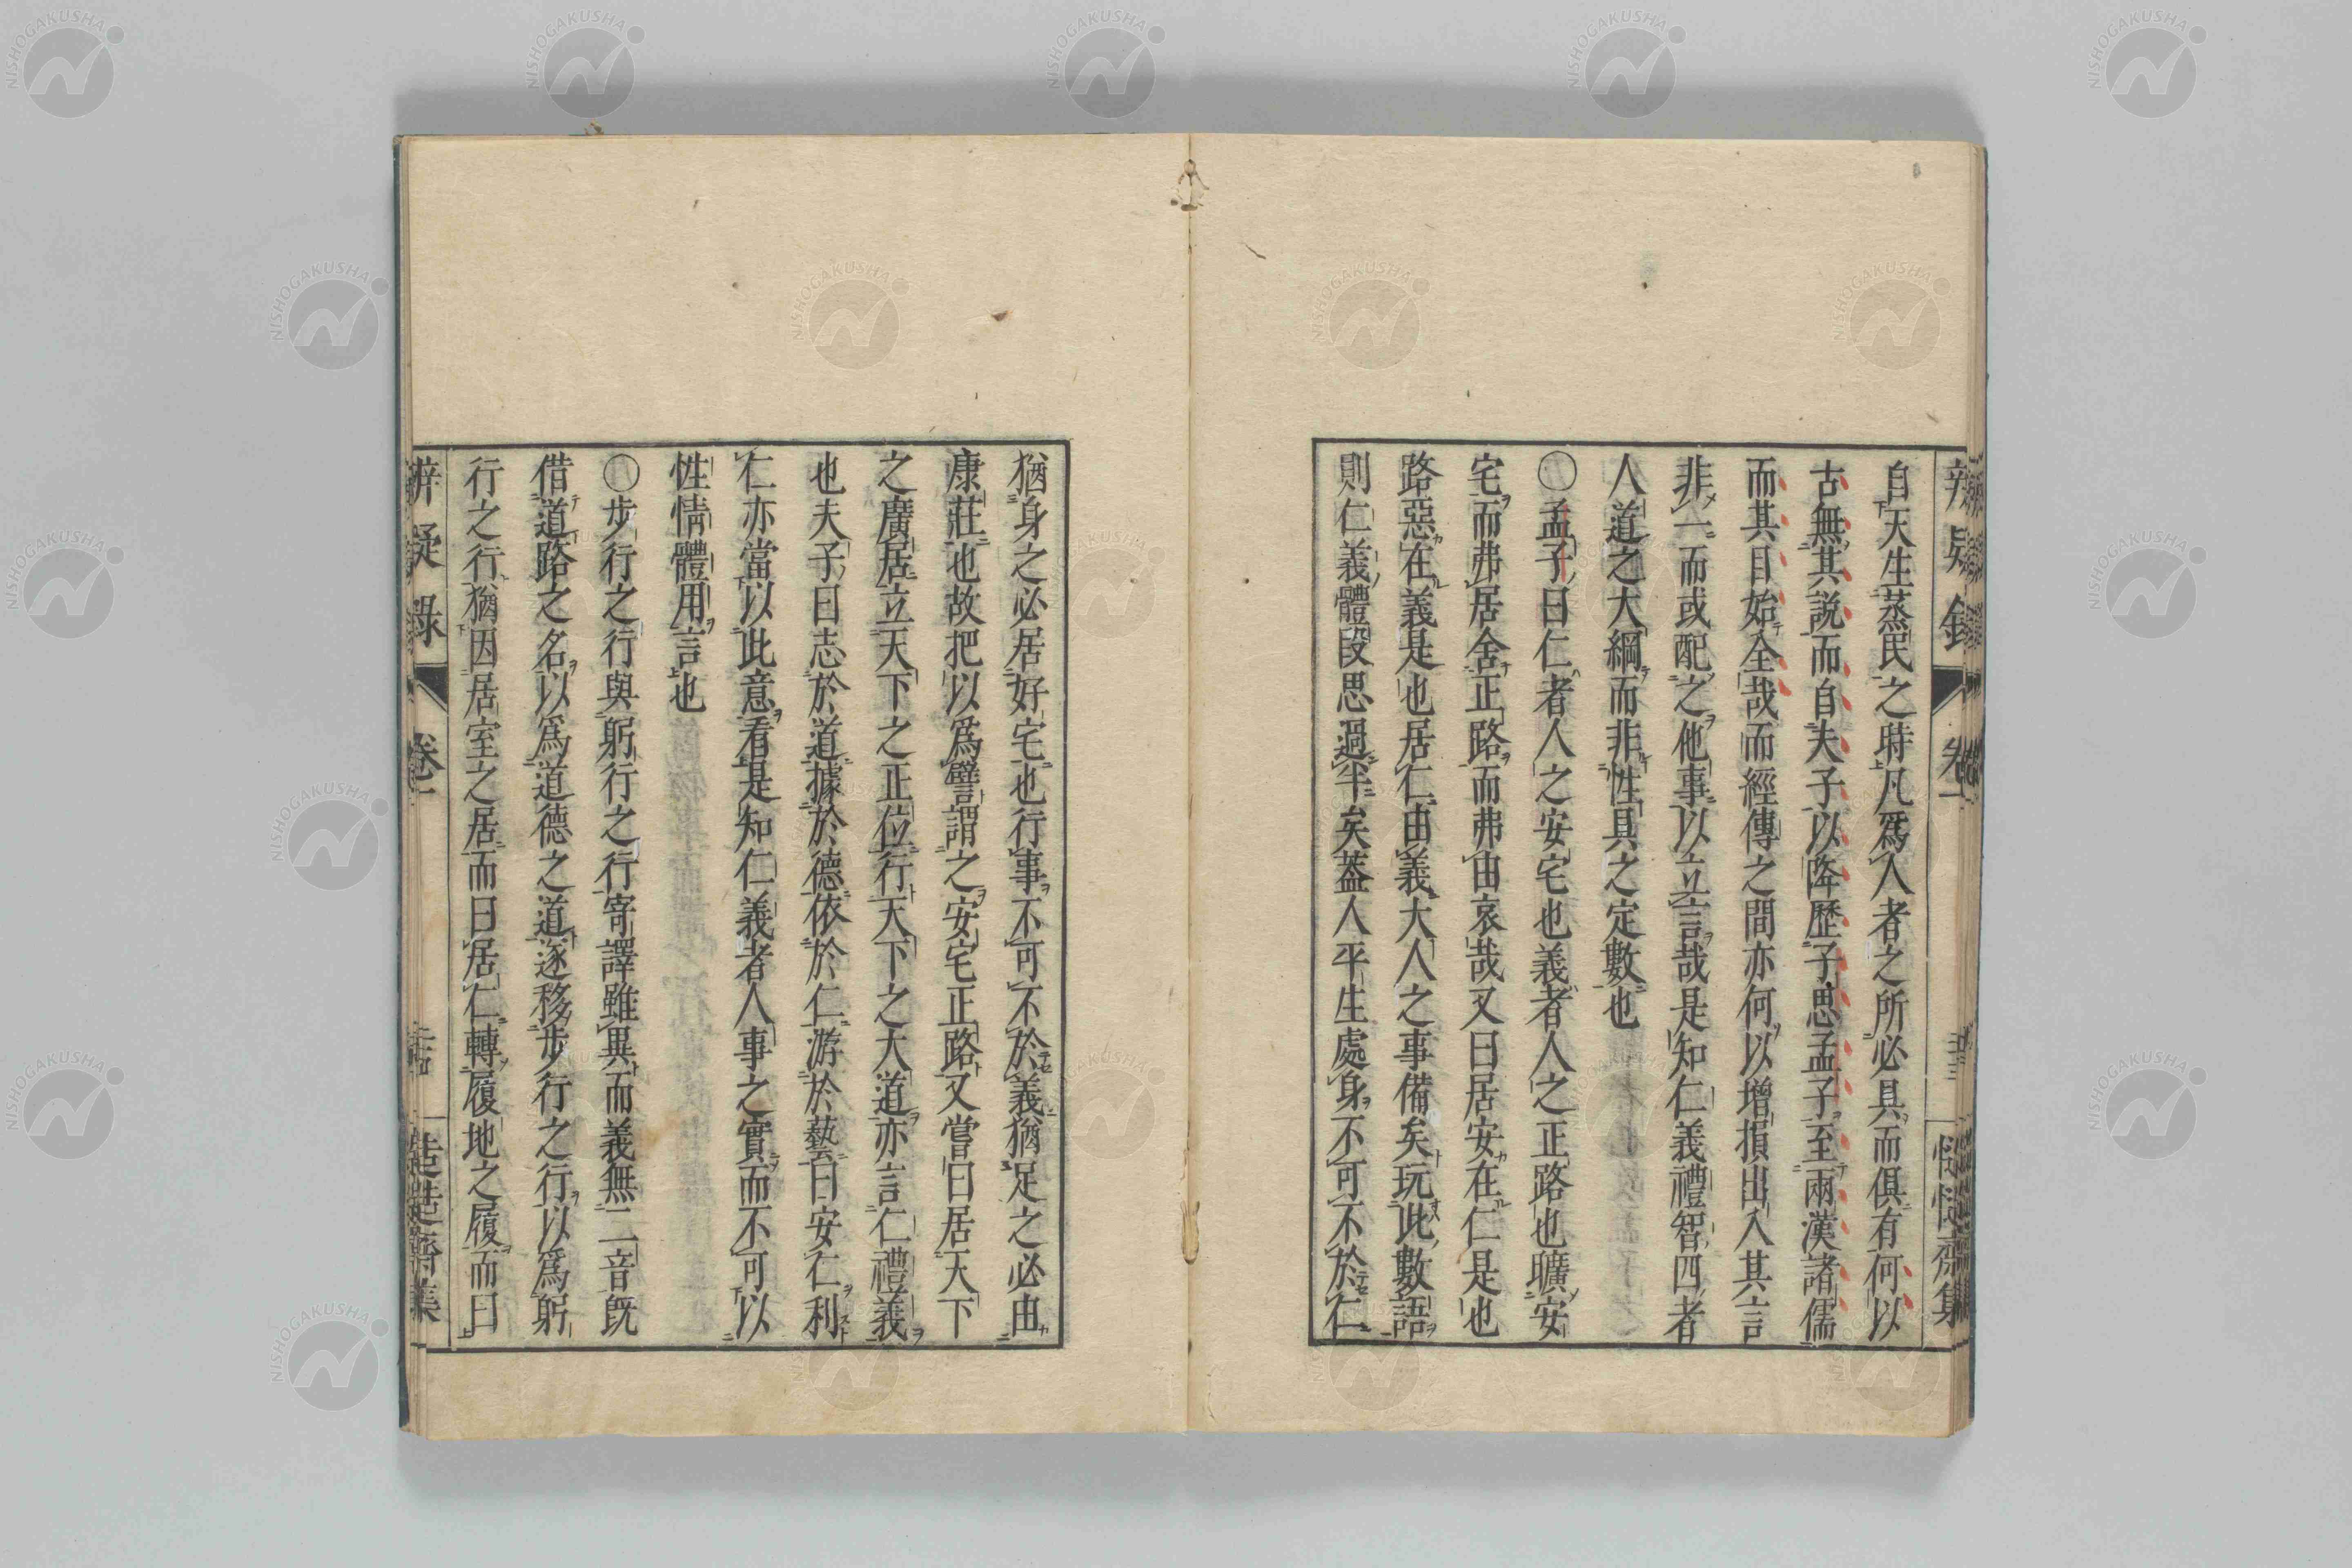 自天生蒸民之時凡爲人者之所必具而俱有何以
古無其説而自夫子以降歷子思孟子至兩漢諸儒
而其目始全哉而經傳之間亦何以增損出入其言
非一而或配之他事以立言哉是知仁義禮智四者
人道之大綱而非性具之定數也
〇孟子曰仁者人之安宅也義者人之正路也曠安
宅而弗居舍正路而弗由哀哉又曰居安在仁是也
路惡在義是也居仁由義大人之事備矣玩此數語
則仁義體段思過半矣蓋人平生處身不可不於仁
猶身之必居好宅也行事不可不於義猶足之必由
康莊也故把以爲譬謂之安宅正路又嘗曰居天下
之廣居立天下之正位行天下之大道亦言仁禮義
也夫子曰志於道據於德依於仁游於藝曰安仁利
仁亦當以此意看是知仁義者人事之實而不可以
性情體用言也
〇步行之行與躬行之行寄譯雖異而義無二音旣
借道路之名以爲道德之道遂移步行之行以爲躬
行之行猶因居室之居而曰居仁轉履地之履而曰
辨疑錄 卷一
NISHOGAKUSHA